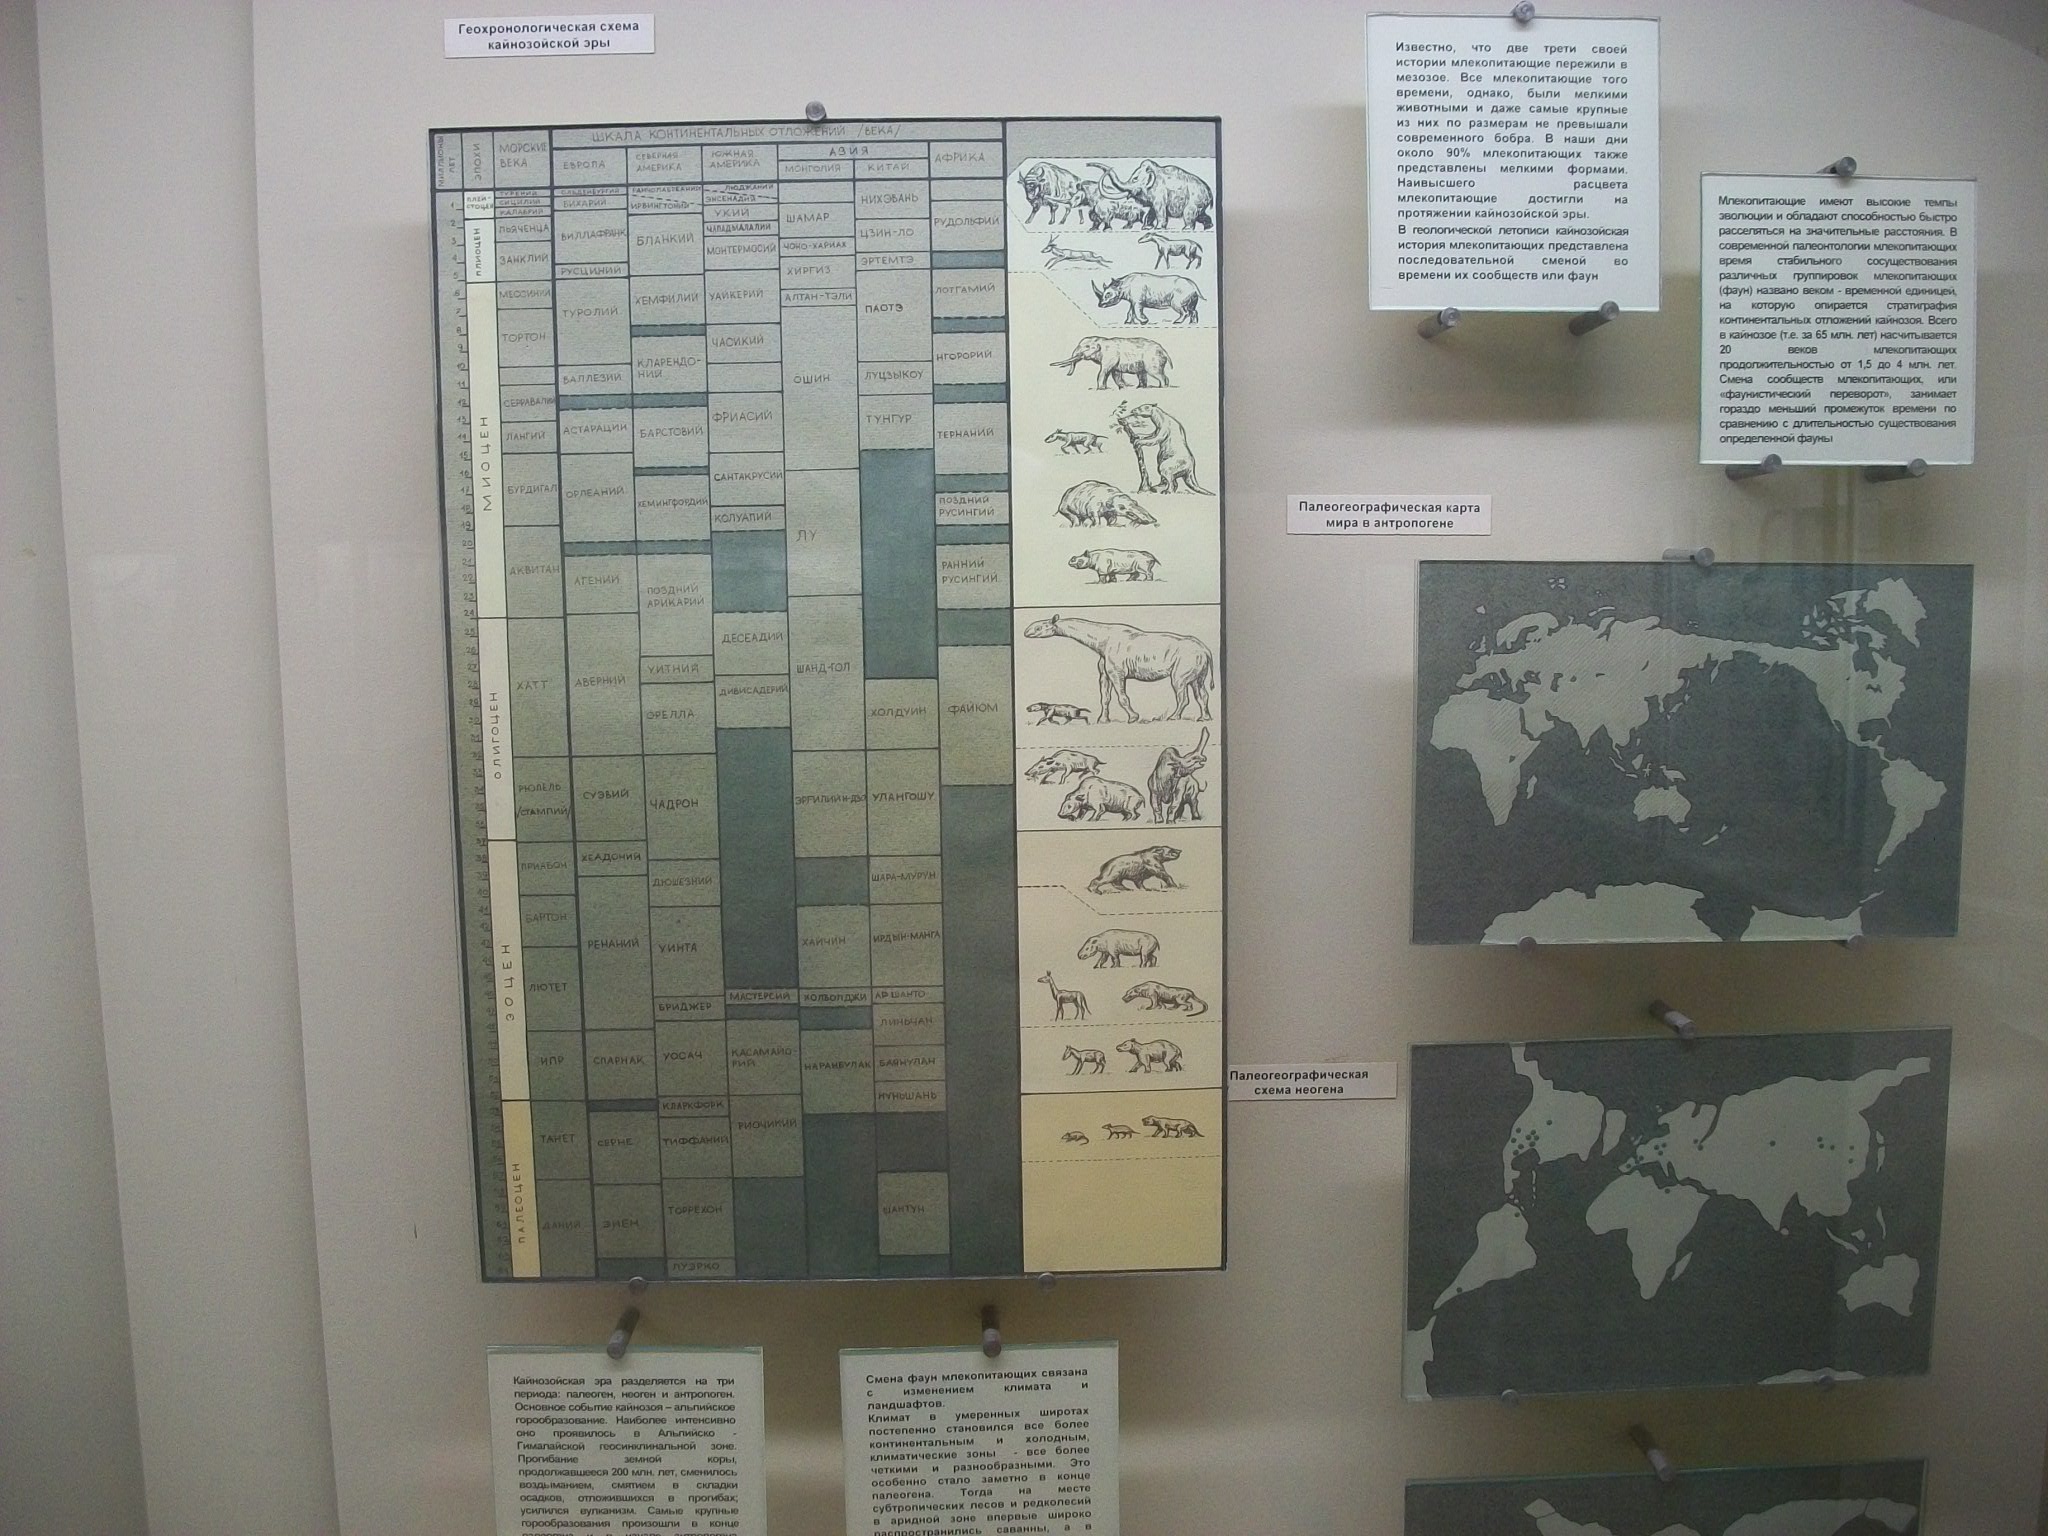 Геохронологическая схема
кайнозойской эры
МИЛЛИОНЫ ЛЕТ
ЭПОХИ
МОРСКИЕ
ВЕКА
ШКАЛА КОНТИНЕНТАЛЬНЫХ ОТЛОЖЕНИЙ /ВЕКА/
ЕВРОПА
СЕВЕРНАЯ
АМЕРИКА
ЮЖНАЯ
АМЕРИКА
АЗИЯ
МОНГОЛИЯ
КИТАЙ
АФРИКА
ПЛЕЙ-
СТОЦЕН
ПЛИОЦЕН
МИОЦЕН
ОЛИГОЦЕН
ЭОЦЕН
ПАЛЕОЦЕН
СИЦИЛИЙ
КАЛАБРИЙ
ПЬЯЧЕНЦА
ЗАНКЛИЙ
МЕССИНИЙ
ТОРТОН
СЕРРАВАЛИЙ
ЛАНГИЙ
БУРДИГАЛ
АКВИТАН
ХАТТ
РЮПЕЛЬ
/СТАМПИЙ/
ПРИАБОН
БАРТОН
ЛЮТЕТ
ИПР
ТАНЕТ
ДАНИЙ
БИХАРИЙ
ВИЛЛАФРАНК
РУСЦИНИЙ
ТУРОЛИЙ
ВАЛЛЕЗИЙ
АСТАРАЦИЙ
ОРЛЕАНИЙ
АГЕНИЙ
АВЕРНИЙ
СУЭВИЙ
ХЕАДОНИЙ
РЕНАНИЙ
СПАРНАК
СЕРНЕ
ЭНЕН
ИРВИНГТОНИЙ
БЛАНКИЙ
ХЕМФИЛИЙ
КЛАРЕНДО-
НИЙ
БАРСТОВИЙ
ХЕМИНГФОРДИЙ
ПОЗДНИЙ
АРИКАРИЙ
УИТНИЙ
ОРЕЛЛА
ЧАДРОН
ДЮШЕЗНИЙ
УИНТА
БРИДЖЕР
УОСАЧ
КЛАРКФОРК
ТИФФАНИЙ
ТОРРЕХОН
ПУЭРКО
ЛЮДЖАНИЙ
ЭНСЕНАДИЙ
УКИЙ
ЧАПАДМАЛАЛИЙ
МОНТЕРМОСИЙ
УАЙКЕРИЙ
ЧАСИКИЙ
ФРИАСИЙ
САНТАКРУСИЙ
КОЛУАПИЙ
ДЕСЕАДИЙ
ДИВИСАДЕРИЙ
МАСТЕРСИЙ
КАСАМАЙО-
РИЙ
РИОЧИКИЙ
ШАМАР
ЧОНО-ХАРИАХ
ХИРГИЗ
АЛТАН-ТЭЛИ
ОШИН
ЛУ
ШАНД-ГОЛ
ЭРГИЛИЙН-ДЗО
ХАЙЧИН
ХОЛБОЛДЖИ
НАРАНБУЛАК
НИХЭВАНЬ
ЦЗИН-ЛО
ЭРТЕМТЭ
ПАОТЭ
ЛУЦЗЫКОУ
ТУНГУР
ХОЛДУИН
УЛАНГОШУ
ШАРА-МУРУН
ИРДЫН-МАНГА
АРШАНТО
ЛИНЬЧАН
БАЯНУЛАН
НУНЬШАНЬ
ШАНТУН
РУДОЛЬФИЙ
ЛОТГАМИЙ
НГОРОРИЙ
ТЕРНАНИЙ
ПОЗДНИЙ
РУСИНГИЙ
РАННИЙ
РУСИНГИЙ
ФАЙЮМ
Известно, что две трети своей
истории млекопитающие пережили в
мезозое. Все млекопитающие того
времени, однако, были мелкими
животными и даже самые крупные
из них по размерам не превышали
современного бобра. В наши дни
около 90% млекопитающих также
представлены мелкими формами.
Наивысшего расцвета
млекопитающие достигли на
протяжении кайнозойской эры.
В геологической летописи кайнозойская
история млекопитающих представлена
последовательной сменой во
времени их сообществ или фаун
Млекопитающие имеют высокие темпы
эволюции и обладают способностью быстро
расселяться на значительные расстояния. В
современной палеонтологии млекопитающих
время стабильного сосуществования
различных группировок млекопитающих
(фаун) названо веком - временной единицей,
на которую опирается стратиграфия
континентальных отложений кайнозоя. Всего
в кайнозое (т.е. за 65 млн. лет) насчитывается
20 веков млекопитающих
продолжительностью от 1,5 до 4 млн. лет.
Смена сообществ млекопитающих, или
«фаунистический переворот», занимает
гораздо меньший промежуток времени по
сравнению с длительностью существования
определенной фауны
Палеогеографическая карта
мира в антропогене
Палеогеографическая
схема неогена
Кайнозойская эра разделяется на три
периода: палеоген, неоген и антропоген.
Основное событие кайнозоя – альпийское
горообразование. Наиболее интенсивно
оно проявилось в Альпийско -
Гималайской геосинклинальной зоне.
Прогибание земной коры,
продолжавшееся 200 млн. лет, сменилось
воздыманием, смятием в складки
осадков, отложившихся в прогибах;
усилился вулканизм. Самые крупные
горообразования произошли в конце
Смена фаун млекопитающих связана
с изменением климата и
ландшафтов.
Климат в умеренных широтах
постепенно становился все более
континентальным и холодным,
климатические зоны - все более
четкими и разнообразными. Это
особенно стало заметно в конце
палеогена. Тогда на месте
субтропических лесов и редколесий
в аридной зоне впервые широко
распространились саванны, а в